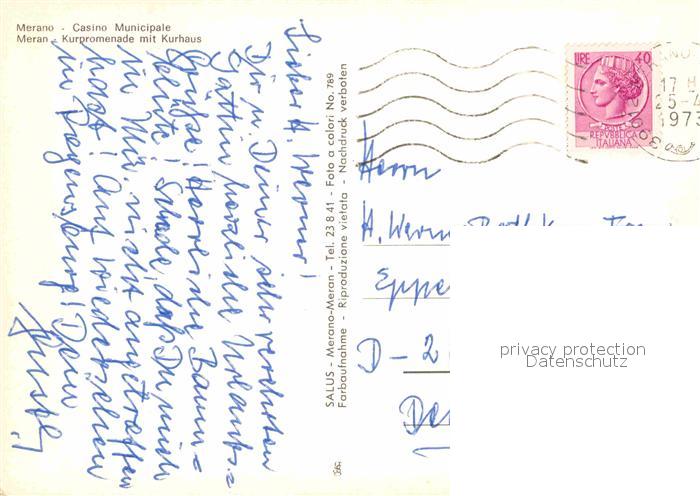 Merano - Casino Municipale
Meran - Kurpromenade mit Kurhaus
Lieber H. Werner!
Dir u. Deiner sehr verehrten
Gattin herzliche Urlaubs=
Grüße! Herrliche Baum=
Schade, daß Du mich
in Mü. nicht angetroffen
hast! Auf Wiedersehen
im Regensburg! Dein
SALUS - Merano-Meran - Tel. 23 8 41 - Foto a colori No. 789
Farbaufnahme - Riproduzione vietata - Nachdruck verboten
LIRE 40
POSTE
REPVBBLICA
ITALIANA
17 H
25-
1973
39012
Herrn
H. Wern
Eppe
D-2
privacy protection
Datenschutz